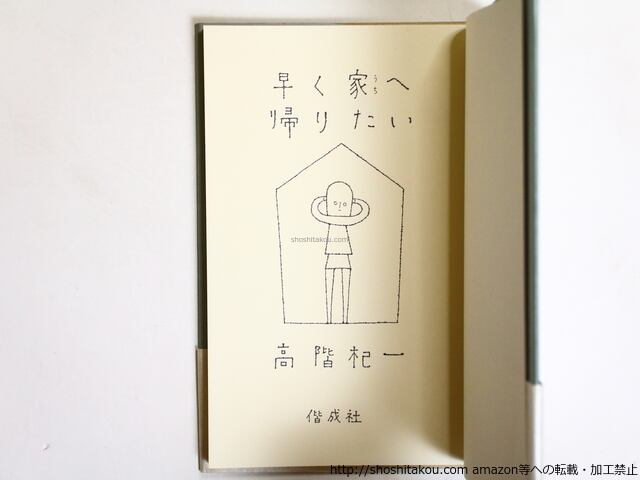 早く家へ
うち
帰りたい
shoshitakou.com
高階杞一
偕成社
http://shoshitakou.com amazon等への転載・加工禁止